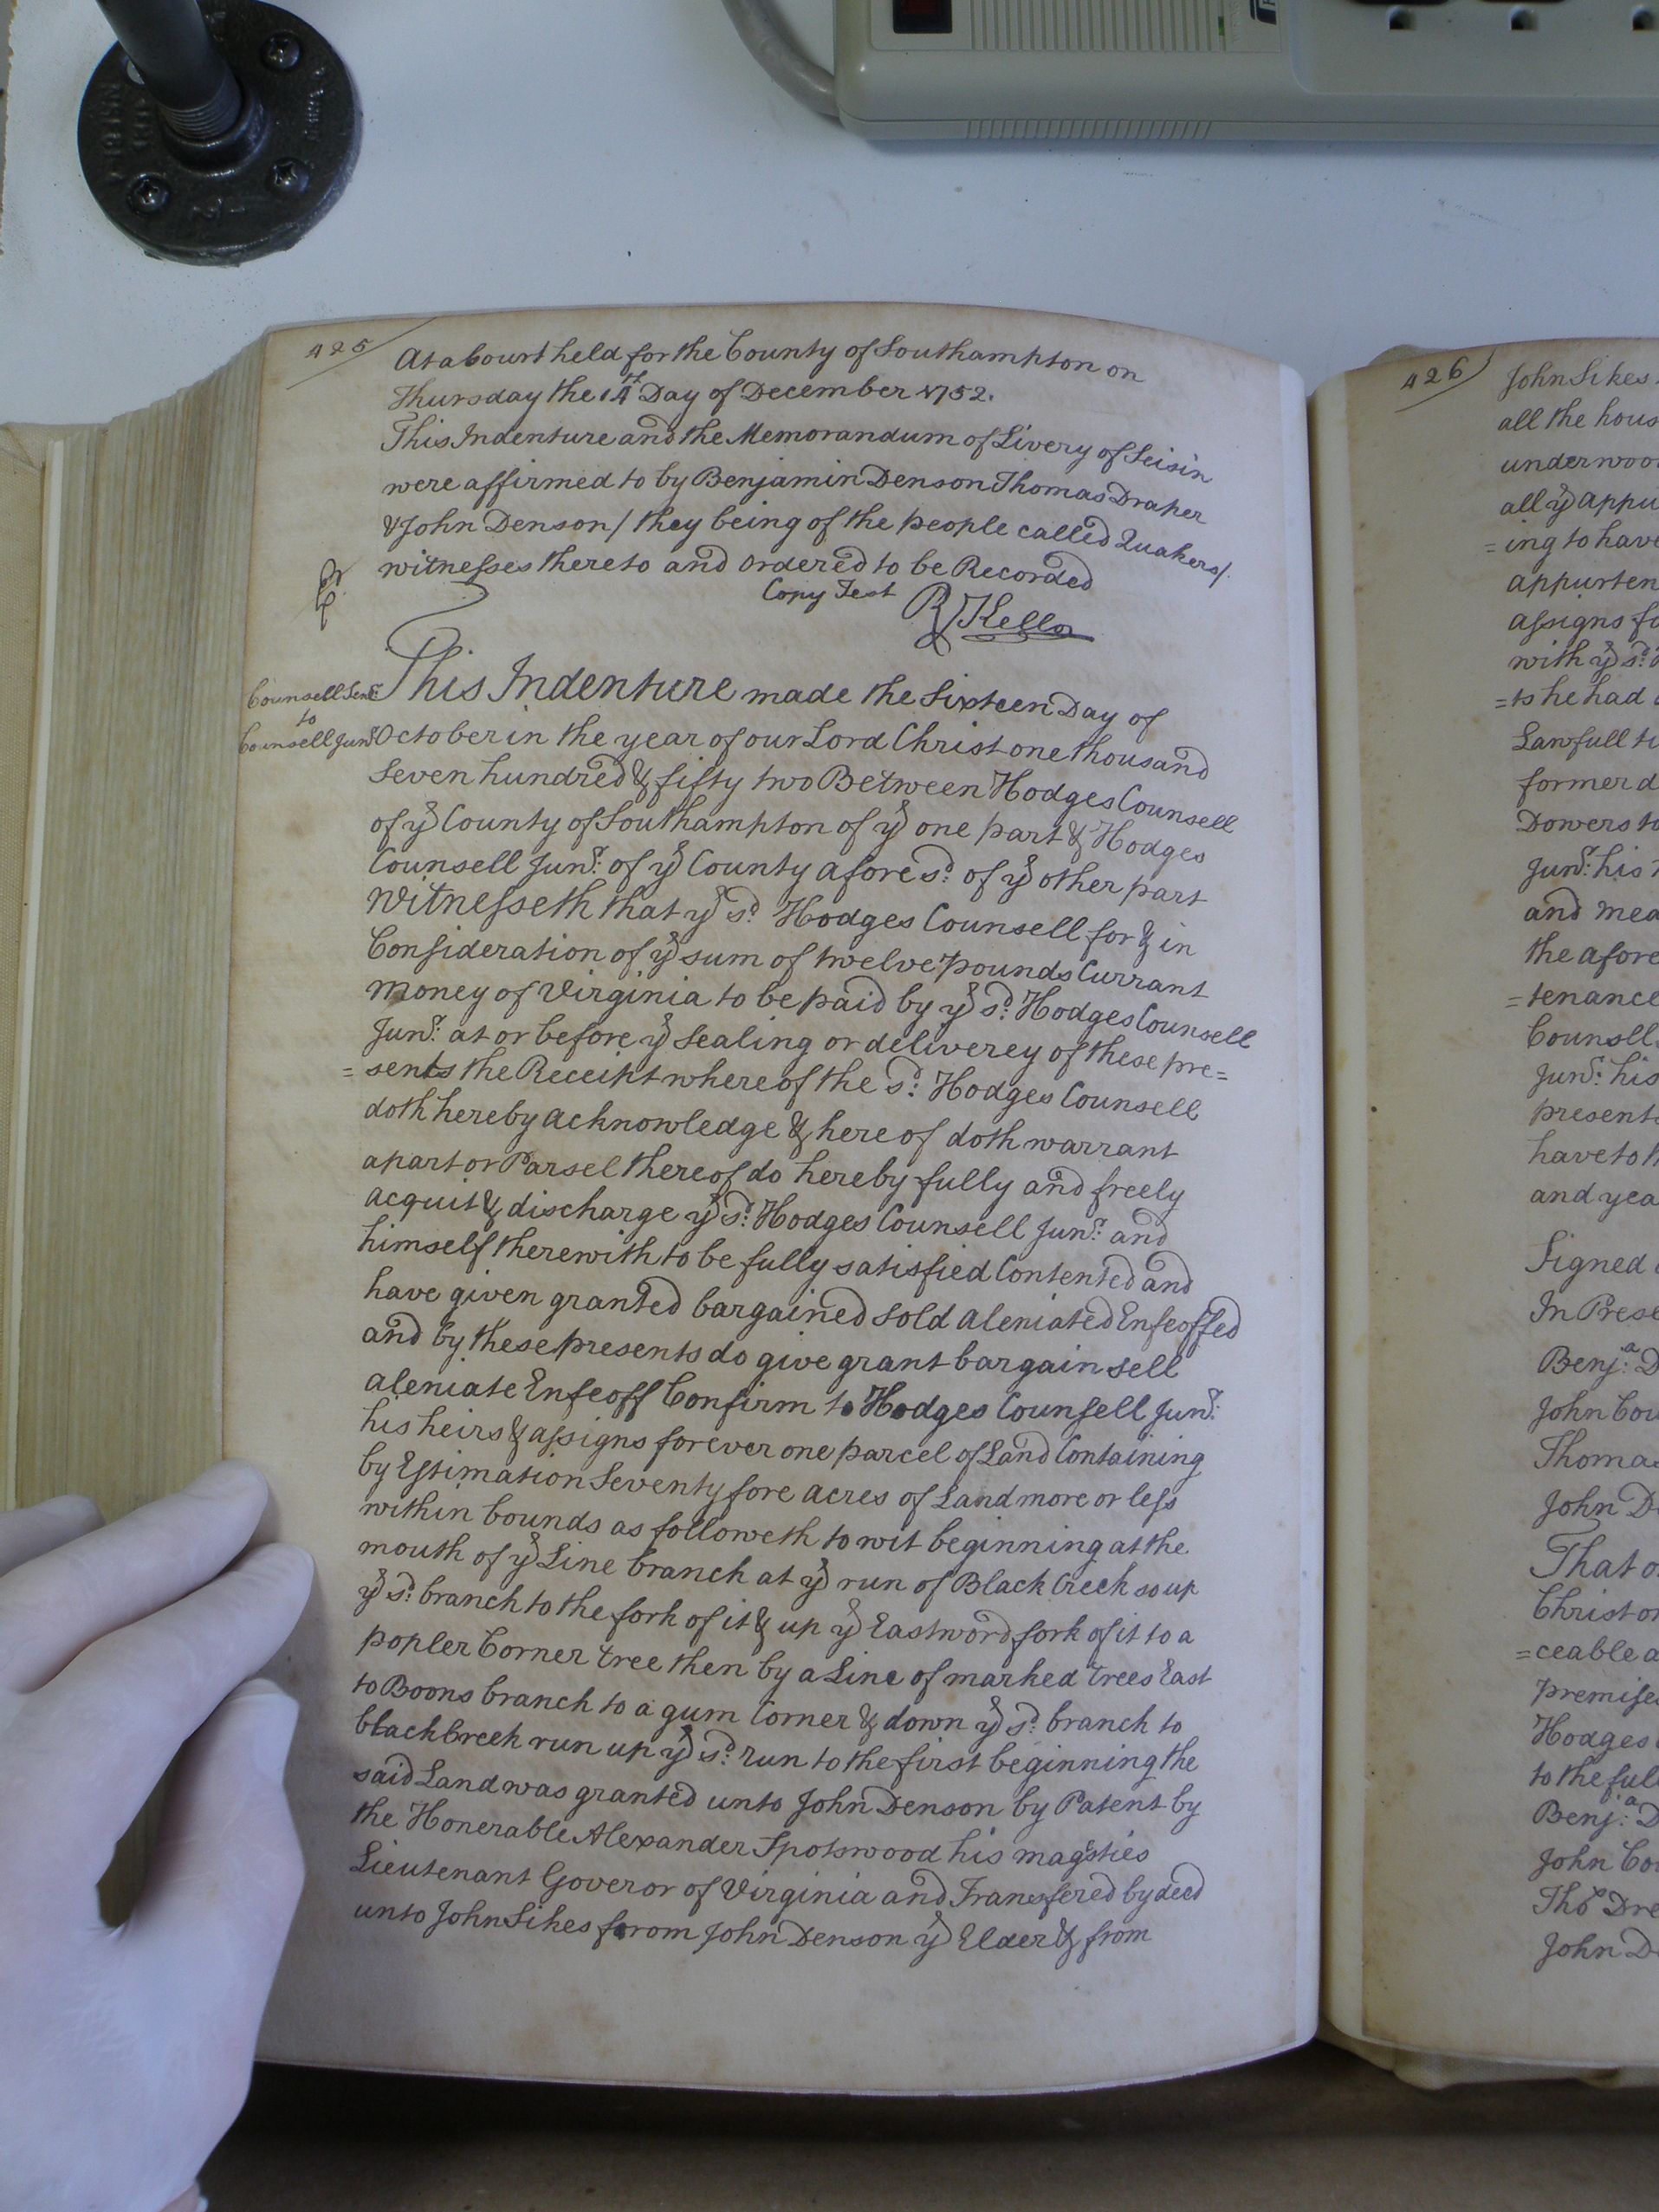 425
At a Court held for the County of Southampton on
Thursday the 14th Day of December 1752.
This Indenture and the Memorandum of Livery of Seisin
were affirmed to by Benjamin Denson Thomas Draper
& John Denson / they being of the people called Quakers /
witnesses thereto and ordered to be Recorded
Copy Test R Kello
Counsell Senr.
to
Counsell Junr.
This Indenture made the Sixteen Day of
October in the year of our Lord Christ one thousand
Seven hundred & fifty two Between Hodges Counsell
of ye County of Southampton of ye one part & Hodges
Counsell Junr: of ye County afores.d of ye other part
Witnesseth that ye sd. Hodges Counsell for & in
Consideration of ye sum of twelve pounds Currant
money of Virginia to be paid by ye sd: Hodges Counsell
Junr: at or before ye Sealing or deliverey of these pre=
=sents the Receipt whereof the sd: Hodges Counsell
doth hereby acknowledge & hereof doth warrant
apart or Parsel thereof do hereby fully and freely
acquit & discharge ye sd: Hodges Counsell Junr: and
himself therewith to be fully satisfied Contented and
have given granted bargained sold aleniated Enfeoffed
and by these presents do give grant bargain sell
aleniate Enfeoff Confirm to Hodges Counsell Junr:
his heirs & assigns forever one parcel of Land Containing
by Estimation Seventy fore acres of Land more or less
within bounds as followeth to wit beginning at the
mouth of ye Line branch at ye run of Black Creek so up
ye sd: branch to the fork of it & up ye Eastword fork of it to a
popler Corner tree then by a Line of marked trees East
to Boons branch to a gum Corner & down ye sd: branch to
black Creek run up ye sd: run to the first beginning the
said Land was granted unto John Denson by Patent by
the Honerable Alexander Spotswood his magesties
Lieutenant Goveror of Virginia and Transfered by deed
unto John Sikes from John Denson ye Elder & from
426
John Sikes
all the hous
underwoo
all ye appu
=ing to have
appurten
assigns fo
with ye sd:
=ts he had
Lawfull ti
former d
Dowers to
Junr: his
and mea
the afore
=tenance
Counsll
Junr: his
present
have to
and yea
Signed
In Prese
Benja: D
John Cou
Thomas
John D
That o
Christ on
=ceable a
premise
Hodges
to the full
Benja: D
John Cou
Tho Dre
John D